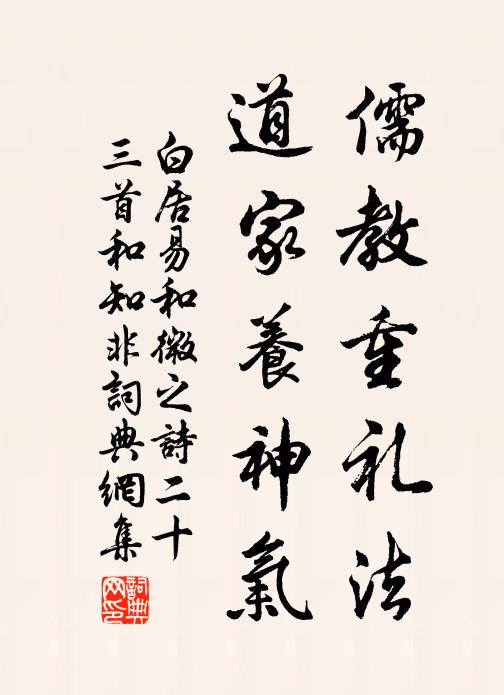 儒教重礼法
道家養神氣
白居易和微之詩二十
三首和知非詞典網集
詞典
网印